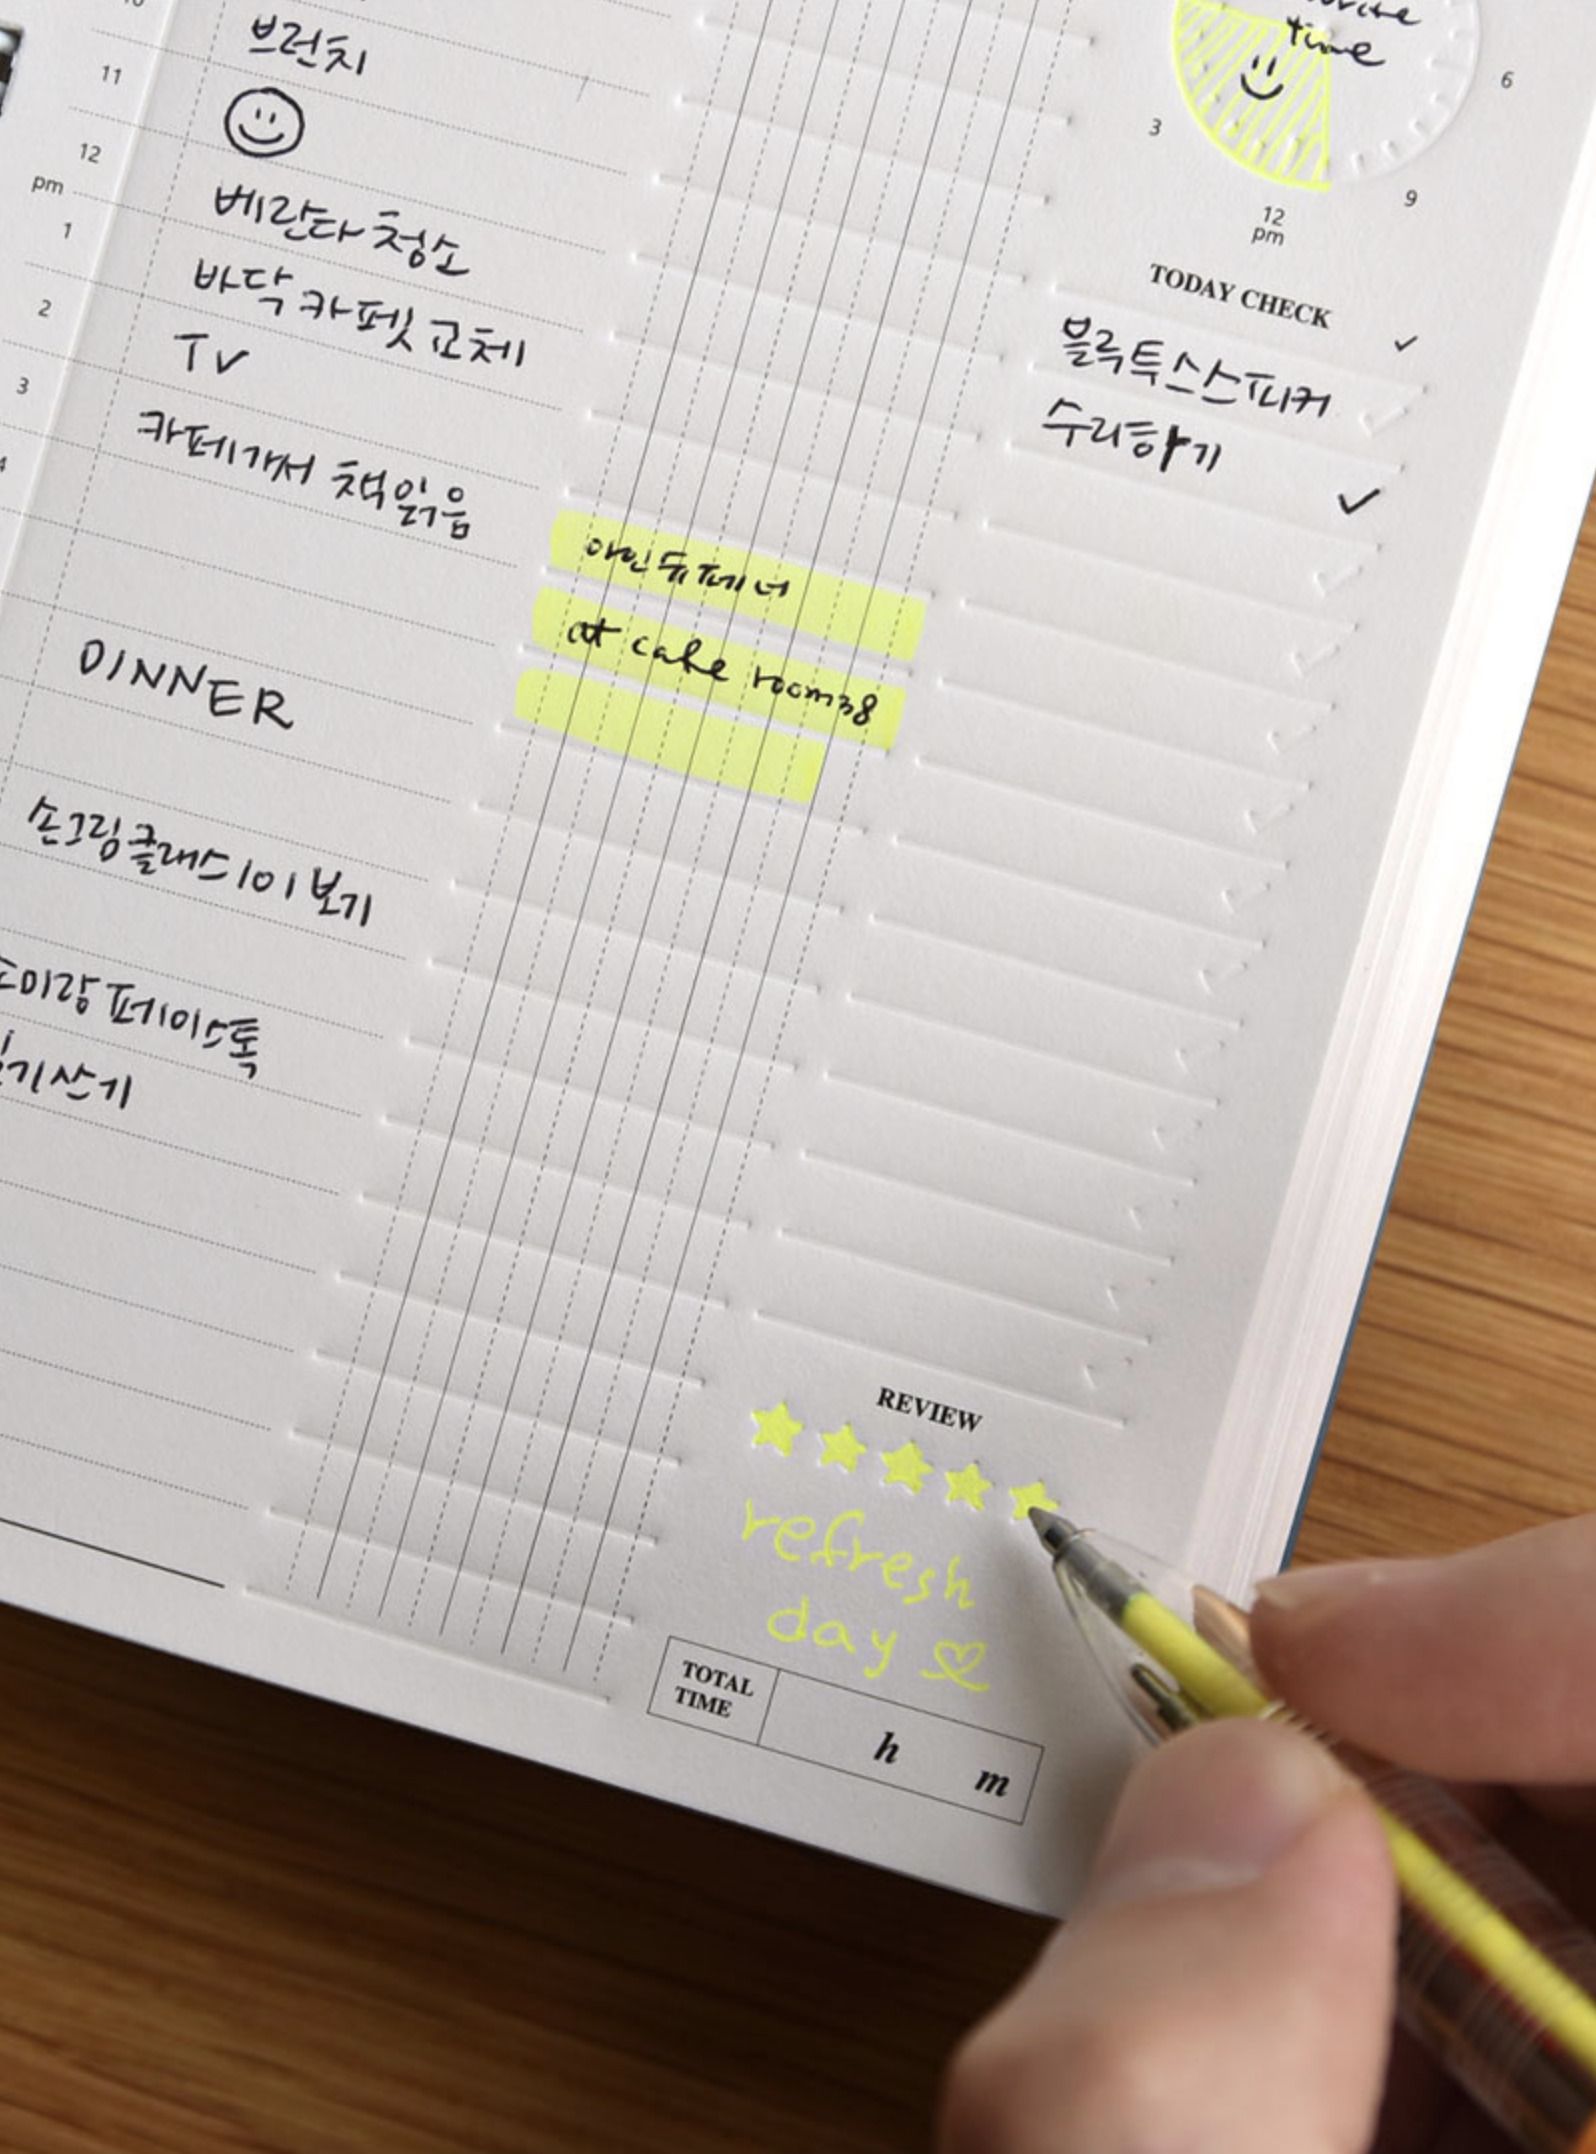 브런치
11
12
pm
베란다 청소
1
바닥 카펫 교체
2
TV
3
카페가서 책읽음
4
아인슈페너
at cafe room38
DINNER
손그림클래스101 보기
페이스톡
time
3
6
9
12
pm
TODAY CHECK
블루투스스피커
수리하기
REVIEW
refresh
day
TOTAL
TIME
h
m